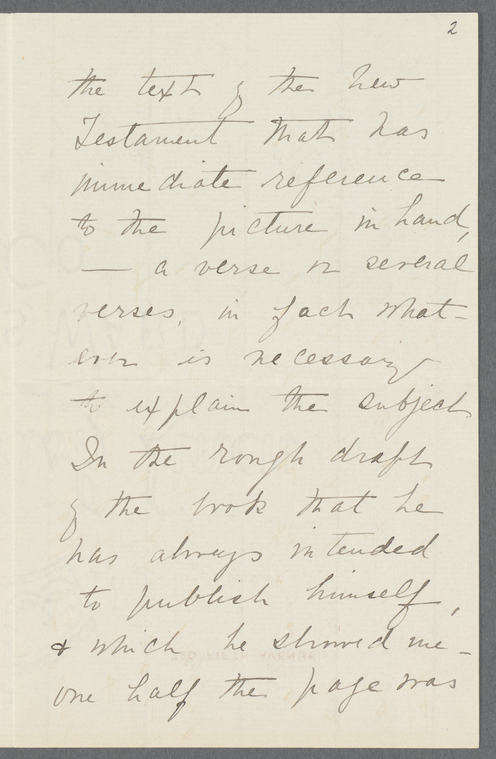 2
the text of the New
Testament that has
immediate reference
to the picture in hand,
— a verse or several
verses, in fact what-
ever is necessary
to explain the subject
In the rough draft
of the book that he
has always intended
to publish himself,
& which he showed me -
one half the page was